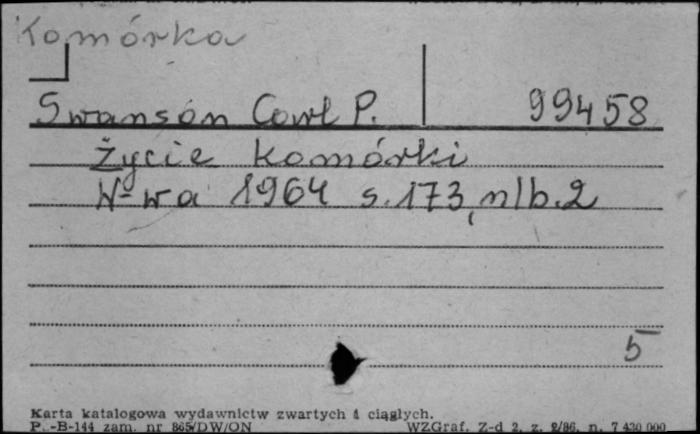 Komórka
Swanson Carl P. 99458
Życie komórki
W-wa 1964 s. 173, nlb. 2
5
Karta katalogowa wydawnictw zwartych i ciągłych.
P.-B-144 zam. nr 865/DW/ON WZGraf. Z-d 2, z. 2/86, n. 7 430 000